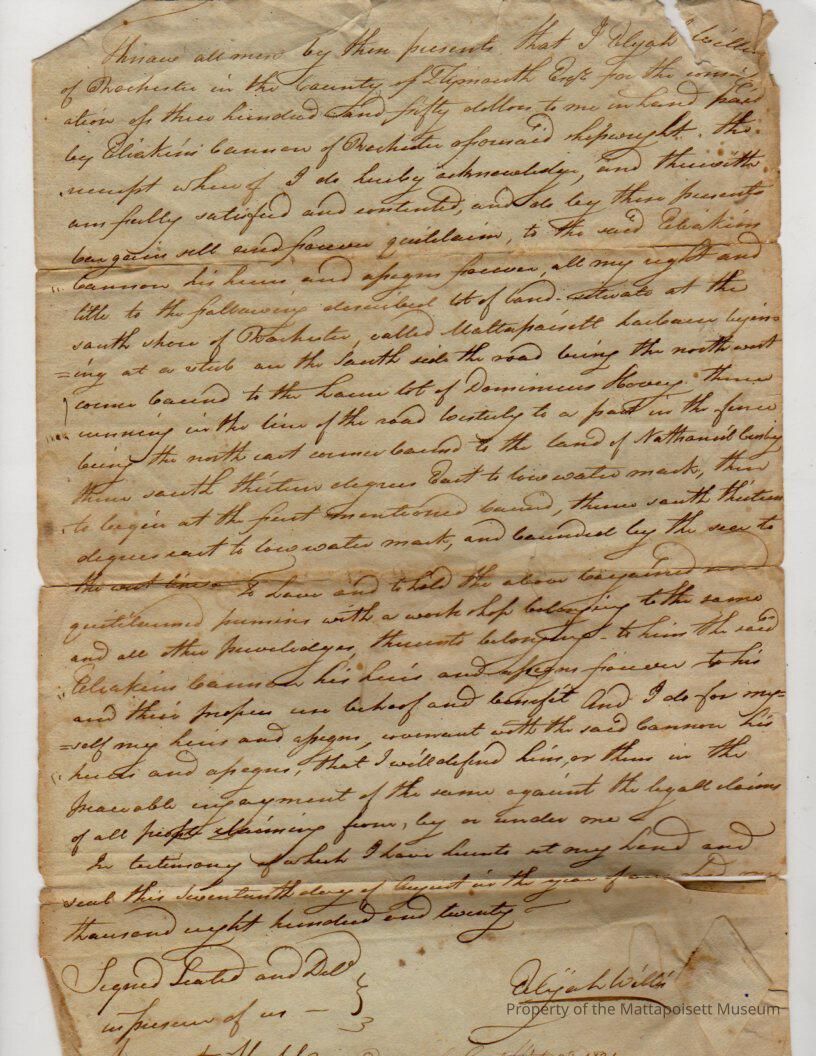 Know all men by these presents that I Elijah Willis
of Rochester in the County of Plymouth Esqr for the consid
ation of three hundred and fifty dollars to me in hand paid
by Eliakim Cannon of Rochester aforesaid shipwright the
receipt whereof I do hereby acknowledge, and therewith
am fully satisfied and contented, and do by these presents
bargain sell and forever quitclaim, to the said Eliakim
Cannon his heirs and assigns forever, all my right and
title to the following described lot of land situate at the
south shore of Rochester, called Mattapoisett harbour begin=
=ing at a stub on the South side the road being the north west
corner bound to the house lot of Dominicus Hovey thence
running in the line of the road westerly to a post in the fence
being the north east corner bound to the land of Nathaniel Crosby
thence south thirteen degrees East to low water mark, then
to begin at the first mentioned bound, thence south thirteen
degrees east to low water mark, and bounded by the sea to
the west line To have and to hold the above bargained and
quitclaimed premises with a work shop belonging to the same
and all other priveledges, thereunto belonging to him the said
Eliakim Cannon his heirs and assigns forever to his
and their proper use behoof and benefit And I do for my=
=self my heirs and assigns, covenant with the said Cannon his
heirs and assigns, that I will defend him, or them in the
peaceable injoyment of the same against the legall claims
of all people claiming from, by or under me
In testimony of which I have hereunto set my hand and
seal this seventeenth day of August in the year of our Lord
thousand eight hundred and twenty
Signed Sealed and Deld
in presence of us —
Elijah Willis
Property of the Mattapoisett Museum